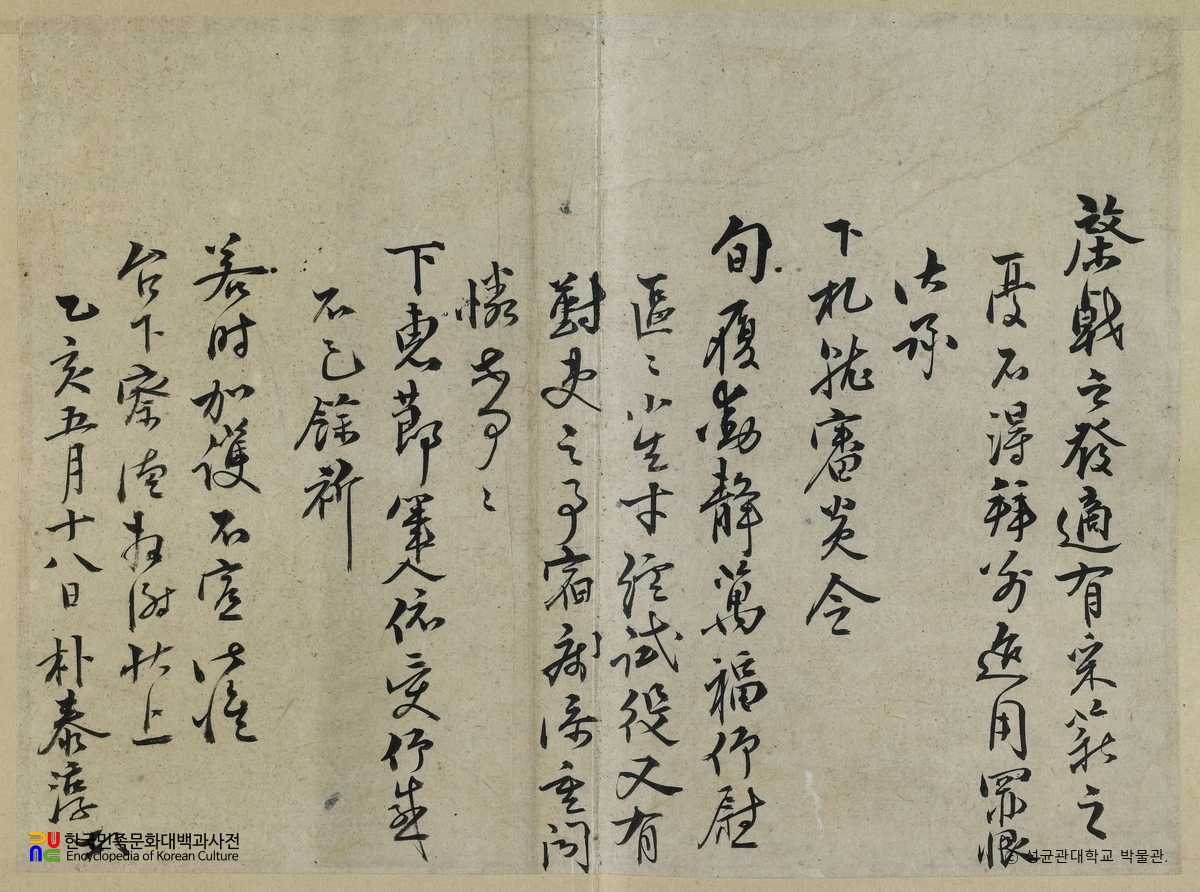 棨戟之發適有采薪之
憂不得拜別迨用罪恨
伏承
下札就審炎令
旬履動靜萬福仰慰
區〻小生才經試役又有
對吏之事宿病添重悶
憐〻
下惠節箑依受仰感
不已餘祈
若時加護不宣伏惟
台下察謹拜謝狀上
乙亥五月十八日 朴泰淳
한국민족문화대백과사전
Encyclopedia of Korean Culture
ⓒ 성균관대학교 박물관.